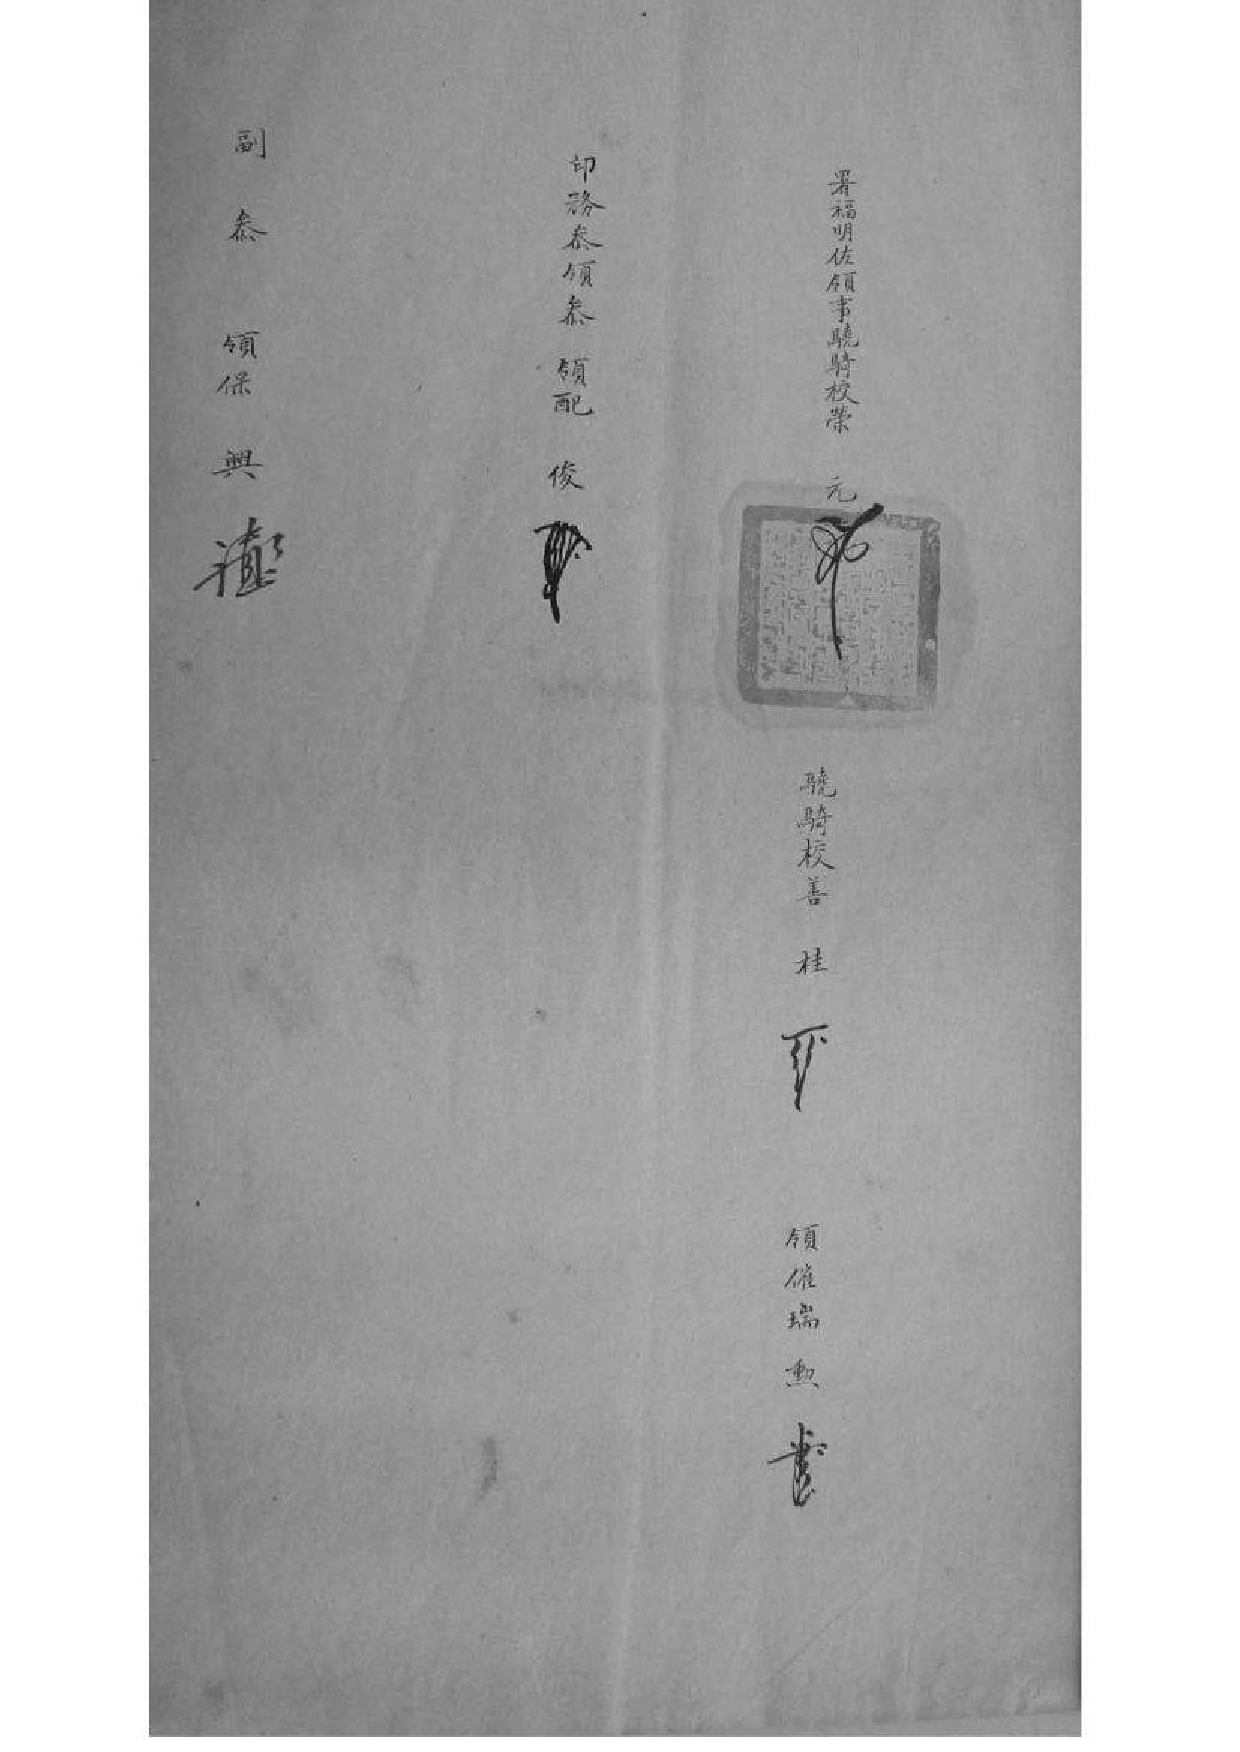 署福明佐領事驍騎校榮元
驍騎校善桂
領催瑞勲
印務叅領叅領配俊
副叅領保興